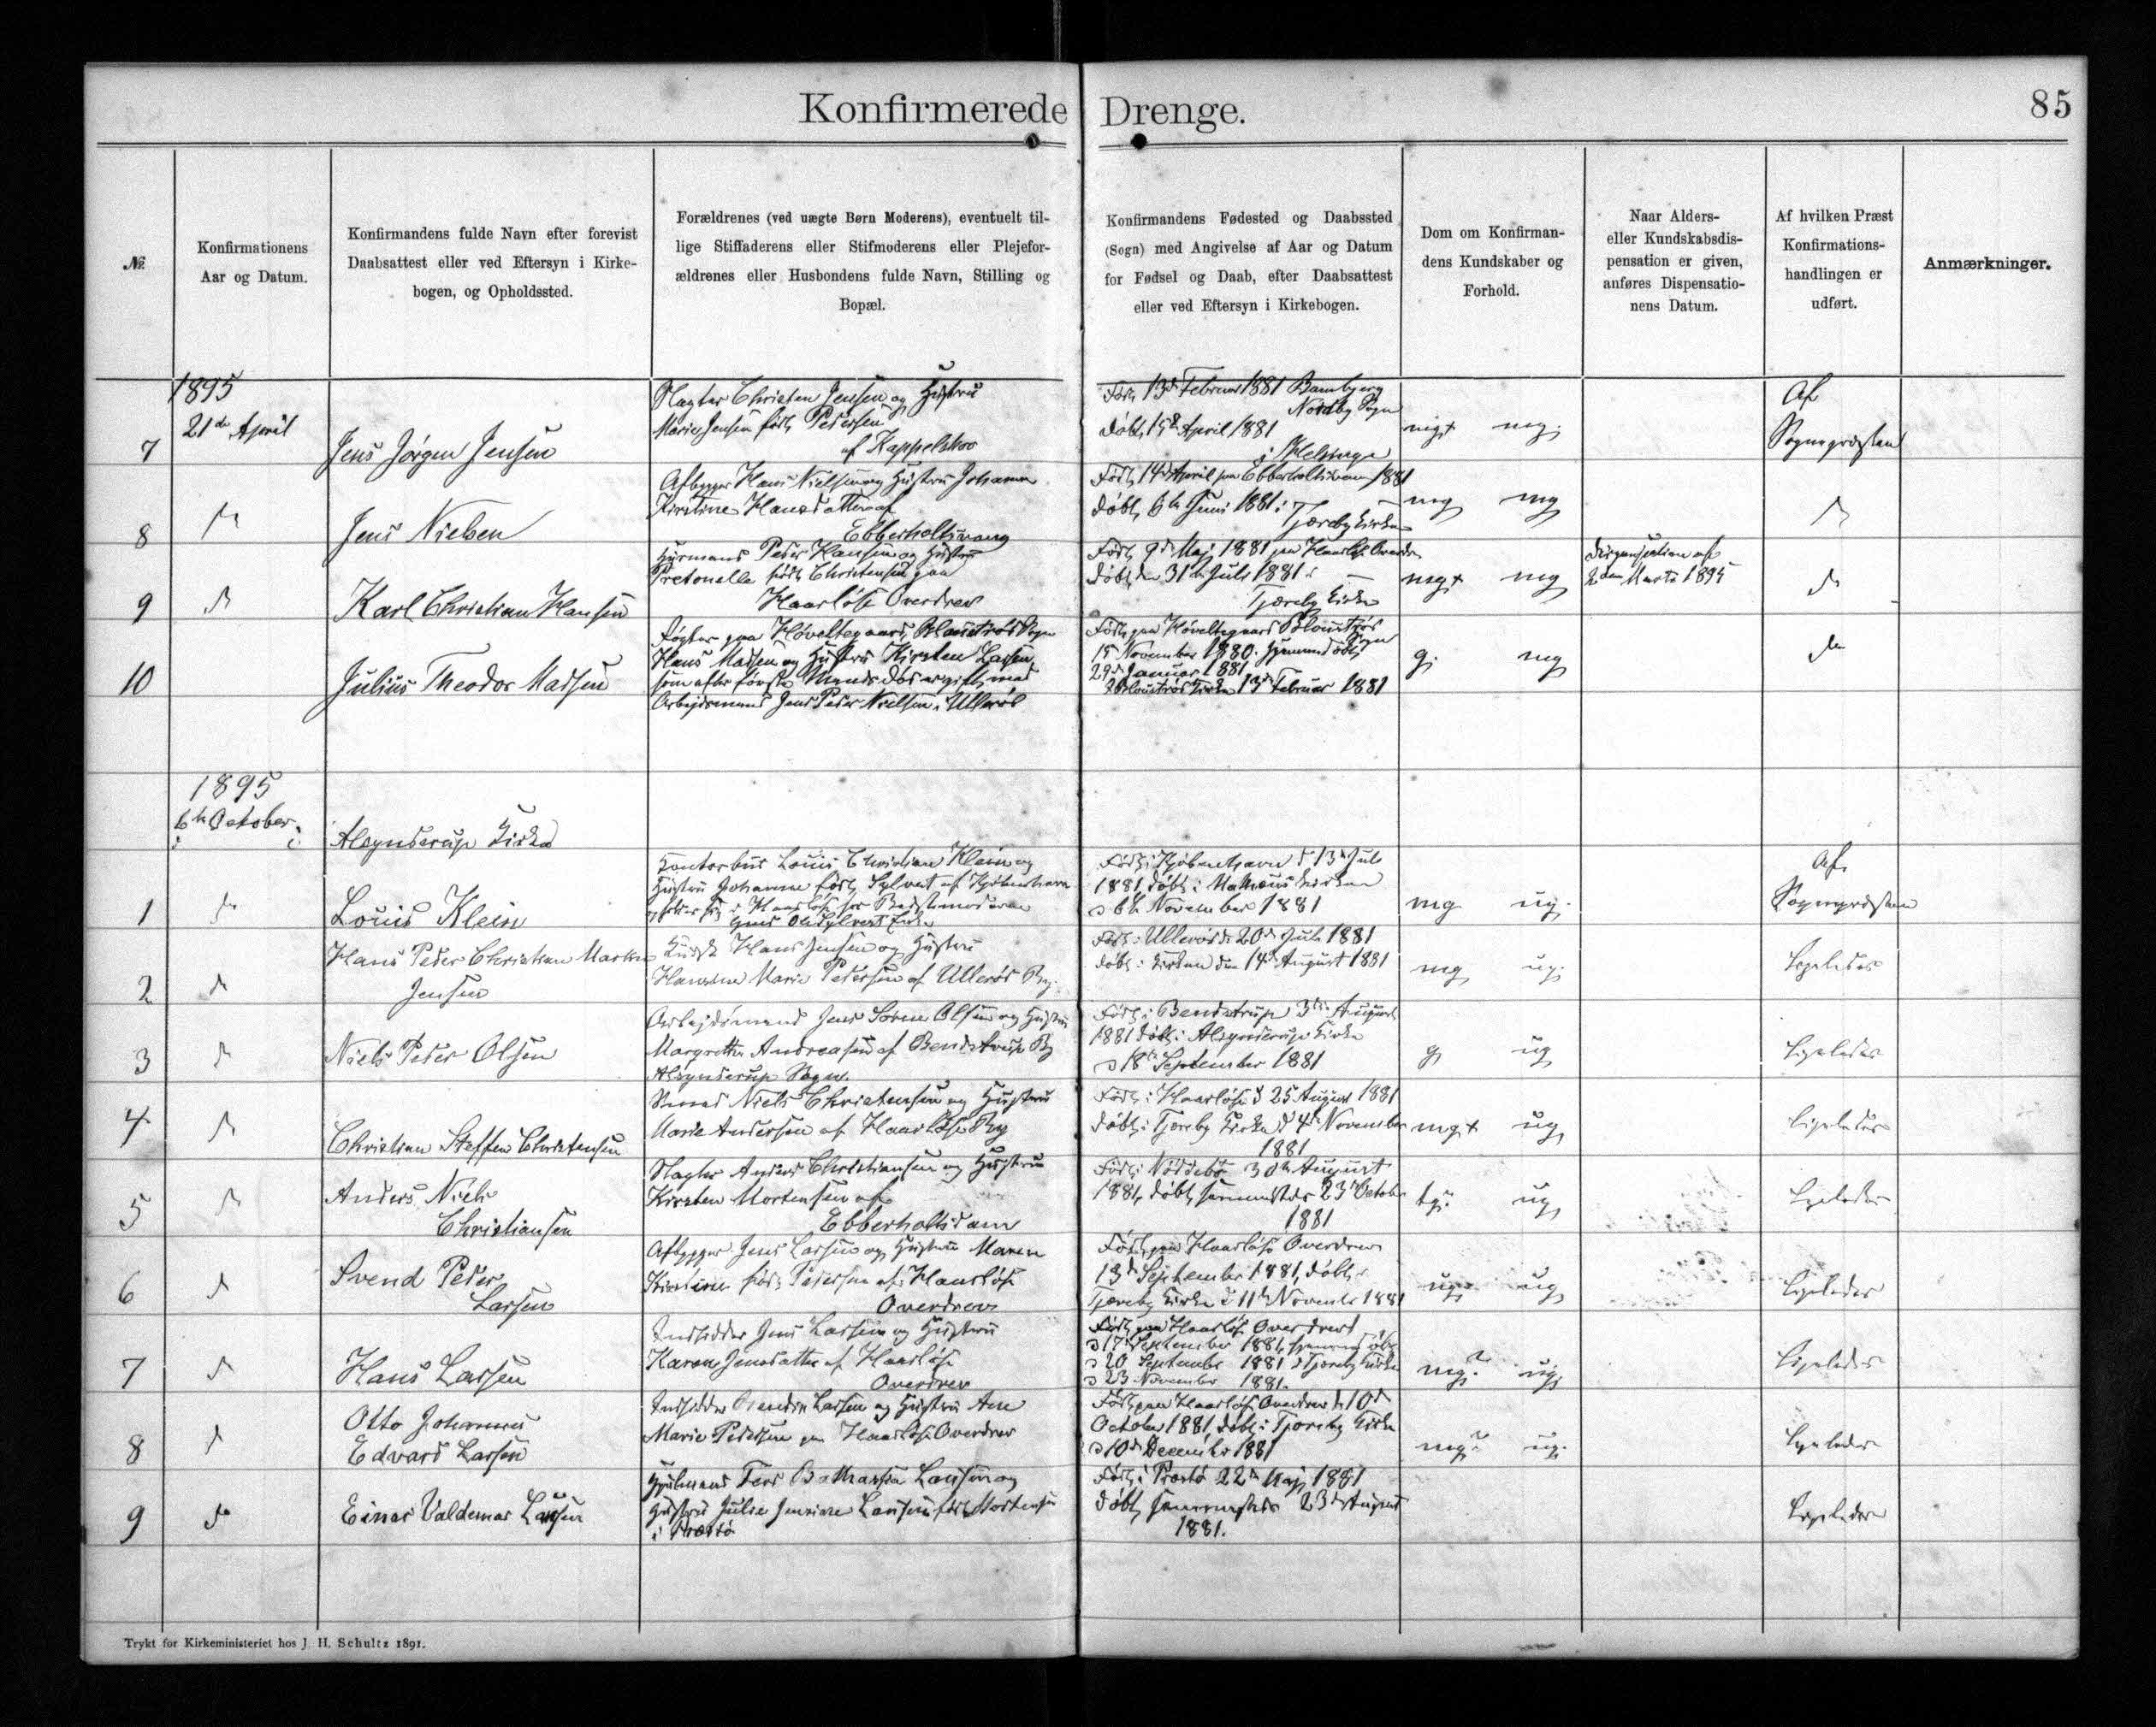 Konfirmerede Drenge.
85
№
Konfirmationens
Aar og Datum.
Konfirmandens fulde Navn efter forevist
Daabsattest eller ved Eftersyn i Kirke-
bogen, og Opholdssted.
Forældrenes (ved uægte Børn Moderens), eventuelt til-
lige Stiffaderens eller Stifmoderens eller Plejefor-
ældrenes eller Husbondens fulde Navn, Stilling og
Bopæl.
Konfirmandens Fødested og Daabssted
(Sogn) med Angivelse af Aar og Datum
for Fødsel og Daab, efter Daabsattest
eller ved Eftersyn i Kirkebogen.
Dom om Konfirman-
dens Kundskaber og
Forhold.
Naar Alders-
eller Kundskabsdis-
pensation er given,
anføres Dispensatio-
nens Datum.
Af hvilken Præst
Konfirmations-
handlingen er
udført.
Anmærkninger.
1895
21de April
7
Jens Jørgen Jensen
Slagter Christen Jensen og Hustru
Marie Jensen født Petersen
af Kappelskov
Født 13de Februar 1881
Nørreby Sogn
døbt April 1881
i
mg+ mg.
Af
Sognepræsten
8
Jens Nielsen
Afbygger Hans Nielsen og Hustru Johanne
Kirstine Hansdatter af
Ebberholtsvang
Født 14de April paa Ebberholtsvang 1881
døbt 6te Juni 1881 i
Tjæreby Kirke
mg mg
9
Karl Christian Hansen
Huusmand Peder Hansen og Hustru
Pretonelle født Christensen paa
Haarløse Overdrev
Født 9de Maj 1881 paa Haarløse Overdrev
døbt den 31te Juli 1881 i
Tjæreby Kirke
mg+ mg
Dispensation af
2den Marts 1895
10
Julius Theodor Madsen
Røgter paa Høveltegaard, Blaustrød Sogn
Hans Madsen og Hustru Kirsten Larsen,
som efter første Mands død er gift med
Arbejdsmand Jens Peder Nielsen i Ullerød
Født paa Høveltegaard Bloustrød
Sogn
15 November 1880. Hjemmedøbt
29de Januar 1881
Bloustrød Kirke 13de Februar 1881
g. mg
1895
6te October
i
Alsønderup Kirke
1
Louis Klein
Kontorbud Louis Christian Klein og
Hustru Johanne født Sylvest af Kjøbenhavn
i Haarløse hos Bedstemoderen
Født i Kjøbenhavn d 13de Juli
1881, døbt i Mathæus Kirken
d 6te November 1881
mg ug.
Af
Sognepræsten
2
Hans Peder Christian Marken
Jensen
Hans Jensen og Hustru
Hansine Marie Petersen af Ullerød By.
Født i Ullerød d. 20de Juli 1881
døbt i Kirken den 14de August 1881
mg ug.
Ligeledes
3
Niels Peder Olsen
Arbejdsmand Jens Sørne Olsen og Hustru
Margrethe Andreasen af Bendstrup By
Alsønderup Sogn.
Født i Bendstrup 3die August
1881 døbt i Alsønderup Kirke
d 18de September 1881
g ug
Ligeledes
4
Christian Steffen Christensen
Smed Niels Christensen og Hustru
Marie Andersen af Haarløse By
Født i Haarløse d 25 August 1881
døbt i Tjæreby Kirke d 4de November
1881
mg+ ug
Ligeledes
5
Anders Niels
Christiansen
Slagter Anders Christiansen og Hustru
Kirsten Mortensen af
Ebberholtsdam
Født i Nøddebo 30te August
1881, døbt sammesteds 23de October
1881
tg. ug
Ligeledes
6
Svend Peder
Larsen
Afbygger Jens Larsen og Hustru Maren
Kirstine født Petersen af Haarløse
Overdrev
Født paa Haarløse Overdrev
13de September 1881, døbt i
Tjæreby Kirke d 11te November 1881
ug
Ligeledes
7
Hans Larsen
Indsidder Jens Larsen og Hustru
Karen Jensdatter af Haarløse
Overdrev
Født paa Haarløse Overdrev
d 17de September 1881, hjemmedøbt
d 20 September 1881 i Tjæreby Kirke
d 23 November 1881.
mg. ug.
Ligeledes
8
Otto Johannes
Edvard Larsen
Indsidder Larsen og Hustru Ane
Marie Petersen paa Haarløse Overdrev
Født paa Haarløse Overdrev d. 10de
October 1881, døbt i Tjæreby Kirke
d 10de December 1881
mg. ug.
Ligeledes
9
Einar Valdemar Larsen
Hjulmand Larsen og
Hustru Julie Larsen født Mortensen
i Præstø
Født i Præstø 22de Maj 1881
døbt sammesteds 23de August
1881.
Ligeledes
Trykt for Kirkeministeriet hos J. H. Schultz 1891.